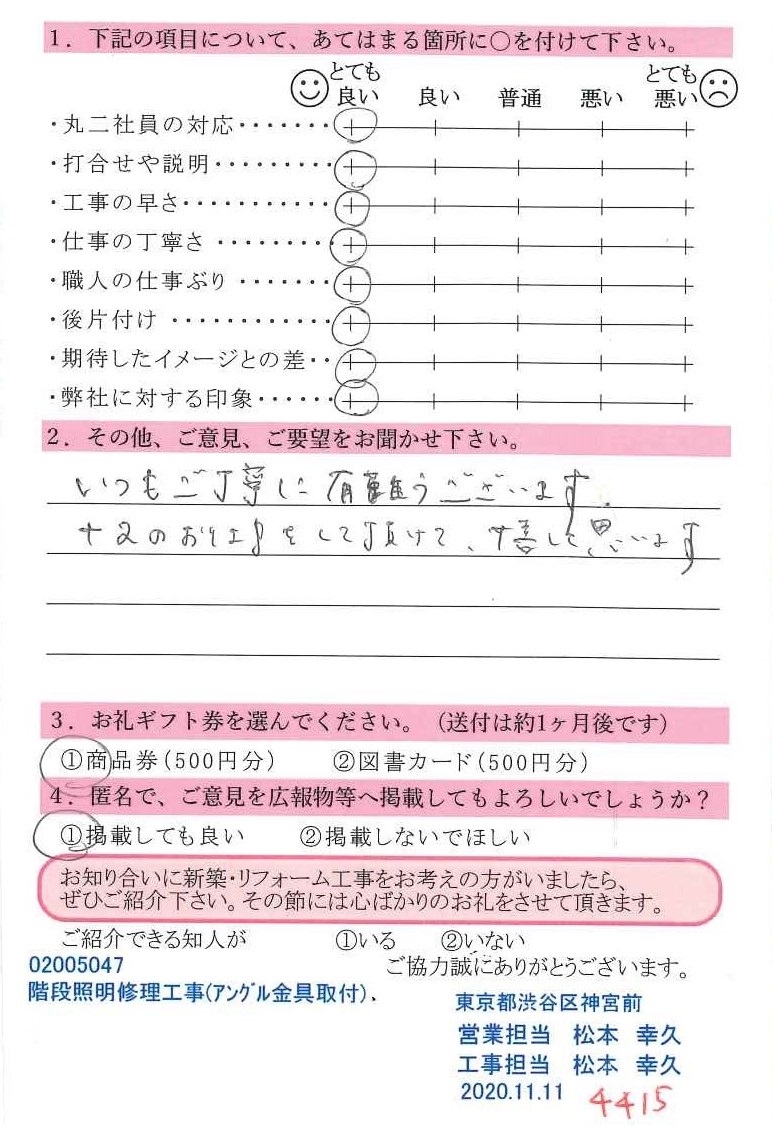 1．下記の項目について、あてはまる箇所に○を付けて下さい。
とても良い 良い 普通 悪い とても悪い
・丸二社員の対応・・・・・・・
・打合せや説明・・・・・・・・・
・工事の早さ・・・・・・・・・・・
・仕事の丁寧さ・・・・・・・・
・職人の仕事ぶり・・・・・・・
・後片付け・・・・・・・・・・・・
・期待したイメージとの差・・
・弊社に対する印象・・・・・・
2．その他、ご意見、ご要望をお聞かせ下さい。
いつもご丁寧に有難うございます。
のお仕事をして頂けて、嬉しく思います
3．お礼ギフト券を選んでください。（送付は約1ヶ月後です）
①商品券(500円分) ②図書カード(500円分)
4．匿名で、ご意見を広報物等へ掲載してもよろしいでしょうか？
①掲載しても良い ②掲載しないでほしい
お知り合いに新築・リフォーム工事をお考えの方がいましたら、
ぜひご紹介下さい。その節には心ばかりのお礼をさせて頂きます。
ご紹介できる知人が ①いる ②いない
02005047
ご協力誠にありがとうございます。
階段照明修理工事(ｱﾝｸﾞﾙ金具取付)、
東京都渋谷区神宮前
営業担当 松本 幸久
工事担当 松本 幸久
2020.11.11
4415